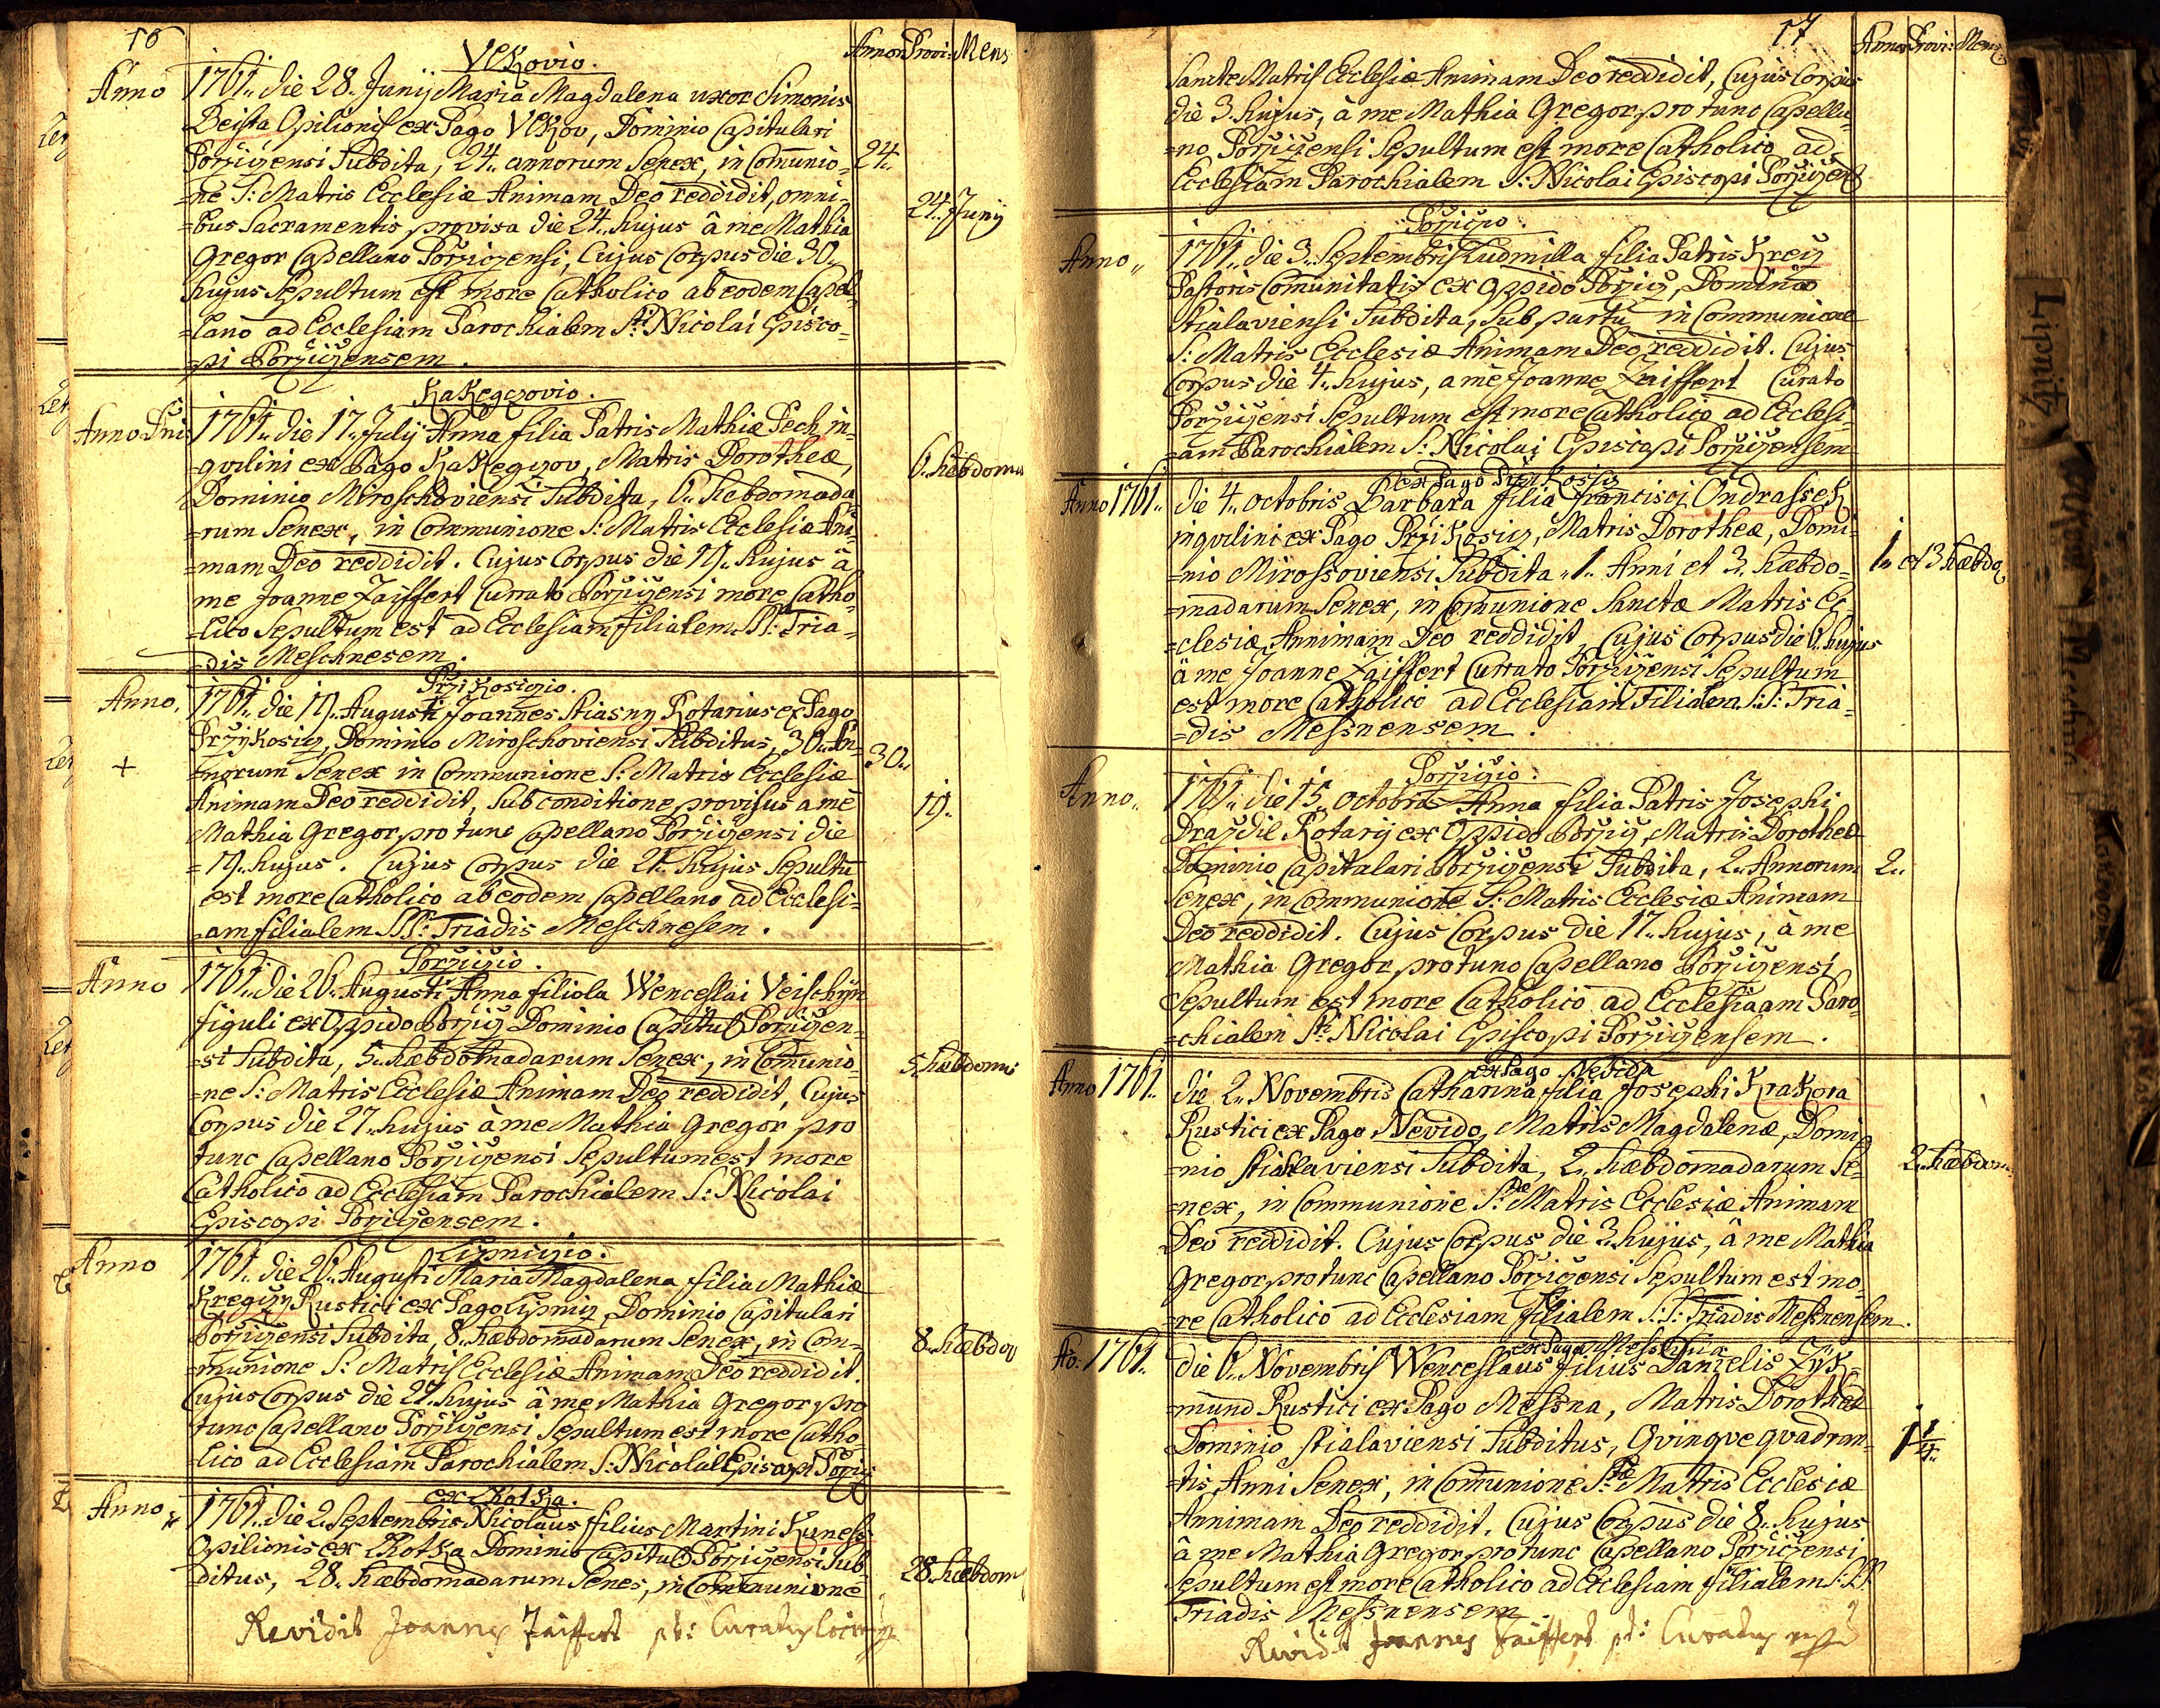 16
Annor Provi: Mens
VKovio.
Anno 1761. die 28. Junij Maria Magdalena uxor Simonis
Beista Opilionis ex Pago VKov, Dominio Capitulari
Porzicensi Subdita, 24. annorum Senex, in Comunio- 24.
=ne S: Matris Ecclesiæ Animam Deo reddidit, omni-
=bus Sacramentis provisa die 24. hujus â me Mathia 24. Junij
Gregor Capellano Porzicensi, Cujus Corpus die 30.
hujus Sepultum est more Catholico ab eodem Capel-
=lano ad Ecclesiam Parochialem Sti Nicolai Episco-
=pi Porzicensem.
KaKegczovio.
Anno Dni 1761. die 17. July Anna filia Patris Mathiæ Pech in-
=qvilini ex Pago KaKegczov, Matris Dorotheæ, 6. hebdoma
Dominio Miroschoviensi Subdita, 6. hebdomada
=rum Senex, in Communione S: Matris Ecclesiæ Ani-
=mam Deo reddidit. Cujus Corpus die 19. hujus â
me Joanne Zaiffert Currato Porzicensi more Catho-
=lico Sepultum est ad Ecclesiam filialem SS: Tria-
=dis Meschnesem.
PrziKosiczio.
Anno. 1761. die 19. Augusti Joannes Stiasny Rotarius ex Pago
PrzyKosicz, Dominio Miroschoviensi Subditus, 30. An- 30.
+ =norum Senex in Communione S: Matris Ecclesiæ
Animam Deo reddidit, Sub conditione provisus a me 19.
Mathia Gregor pro tunc Capellano Porzicensi die
=19. hujus. Cujus Corpus die 21. hujus Sepultū
est more Catholico ab eodem Capellano ad Ecclesi-
=am filialem SS: Triadis Meschnesem.
Porziczio.
Anno 1761. die 26. Augusti Anna filiola Wenceslai Veischyn
figuli ex Oppido Porzicz Dominio Capitul Porzicen-
=si Subdita, 5. hæbdomadarum Senex, in Comunio- 5. hæbdoma
=ne S: Matris Ecclesiæ Animam Deo reddidit, Cujus
Corpus die 27. hujus à me Mathia Gregor pro
tunc Capellano Porzicensi Sepultum est more
Catholico ad Ecclesiam Parochialem S: Nicolai
Episcopi Porzicensem.
Lipniczio.
Anno 1761. die 26. Augusti Maria Magdalena filia Mathiæ
Kregczy Rustici ex Pago Lipnicz Dominio Capitulari
Porzicensi Subdita, 8. hæbdomadarum Senex, in Com- 8. hæbdo
=munione S: Matris Ecclesiæ Animam Deo reddidit.
Cujus Corpus die 27. hujus à me Mathia Gregor pro
tunc Capellano Porzicensi Sepultum est more Catho-
=lico ad Ecclesiam Parochialem S: Nicolai Episcopi Porzic
ex LhotKa.
Anno 1761. die 2. Septembris Nicolaus filius Martini Kuness
Opilionis ex LhotKa Dominio Capitul Porzicensi Sub-
=ditus, 28. hæbdomadarum Senes, in Communione 28. hæbdom
Revidit Joannes Zaiffert pt: Curatus loci
17
Annor Provi: Mens
Sanctæ Matris Ecclesiæ Animam Deo reddidit, Cujus Corpus
die 3. hujus, à me Mathia Gregor pro tunc Capella-
=no Porzicensi Sepultum est more Catholico ad
Ecclesiam Parochialem S: Nicolai Episcopi Porzicens
Porziczio.
Anno. 1761. die 3. Septembris Ludmilla filia Patris Kreij
Pastoris Comunitatis ex oppido Porzicz, Dominio
Stialaviensi Subdita, Sub partu in Communione
S: Matris Ecclesiæ Animam Deo reddidit. Cujus
Corpus die 4. hujus, a me Joanne Zaiffert Curato
Porzicensi Sepultum est more Catholico ad Ecclesi-
=am Parochialem S: Nicolai Episcopi Porzicensem
ex Pago PrziKosicz
Anno 1761. die 4. octobris Barbara filia Francisci OndrasseK
inqvilini ex Pago PrziKosicz, Matris Dorotheæ, Domi-
=nio Mirossoviensi Subdita 1. Anni et 3. hæbdo- 1. et 3 hæbdo
=madarum Senex, in Comunione Sanctæ Matris Ec-
=clesiæ Annimam Deo reddidit, Cujus Corpus die 6. hujus
à me Joanne Zaiffert Currato Porzicensi Sepultum
est more Catholico ad Ecclesiam Filialem S:S: Tria-
=dis Messnensem.
Porziczio.
Anno. 1761. die 15. octobris Anna filia Patris Josephi
Drazdil Rotarij ex Oppido Porzicz, Matris Dorotheæ
Dominio Capitalari Porzicensi Subdita, 2. Annorum 2.
Senex, in Communione S: Matris Ecclesiæ Animam
Deo reddidit. Cujus Corpus die 17. hujus, à me
Mathia Gregor pro tunc Capellano Porzicensi
Sepultum est more Catholico ad Ecclesiaam Paro-
=chialem Sti Nicolai Episcopi Porzicensem.
ex Pago Nevida
Anno 1761. die 2. Novembris Catharina filia Josephi KraKora
Rustici ex Pago Nevido, Matris Magdalenæ, Domi-
=nio Stiallaviensi Subdita, 2. hæbdomadarum Se- 2. hæbdom
=nex, in Communione S: Matris Ecclesiæ Animam
Deo reddidit. Cujus Corpus die 3. hujus, â me Mathia
Gregor pro tunc Capellano Porzicensi Sepultum est mo-
=re Catholico ad Ecclesiam filialem S:S: Triadis Messnensem.
ex Pago
Ao. 1761. die 6. Novembris Wenceslaus filius Danielis ZyK-
=mund Rustici ex Pago Messna, Matris Dorotheæ
Dominio Stialaviensi Subditus, Qvinqve qvadran- 1 1/4
=tis Anni Senex, in Comunione Stæ Matris Ecclesiæ
Annimam Deo reddidit. Cujus Corpus die 8. hujus
à me Mathia Gregor pro tunc Capellano Porzicensi
Sepultum est more Catholico ad Ecclesiam filialem S:S:
Triadis Messnensem.
Revidit Joannes Zaiffert pt: Curatus
Lichnitz